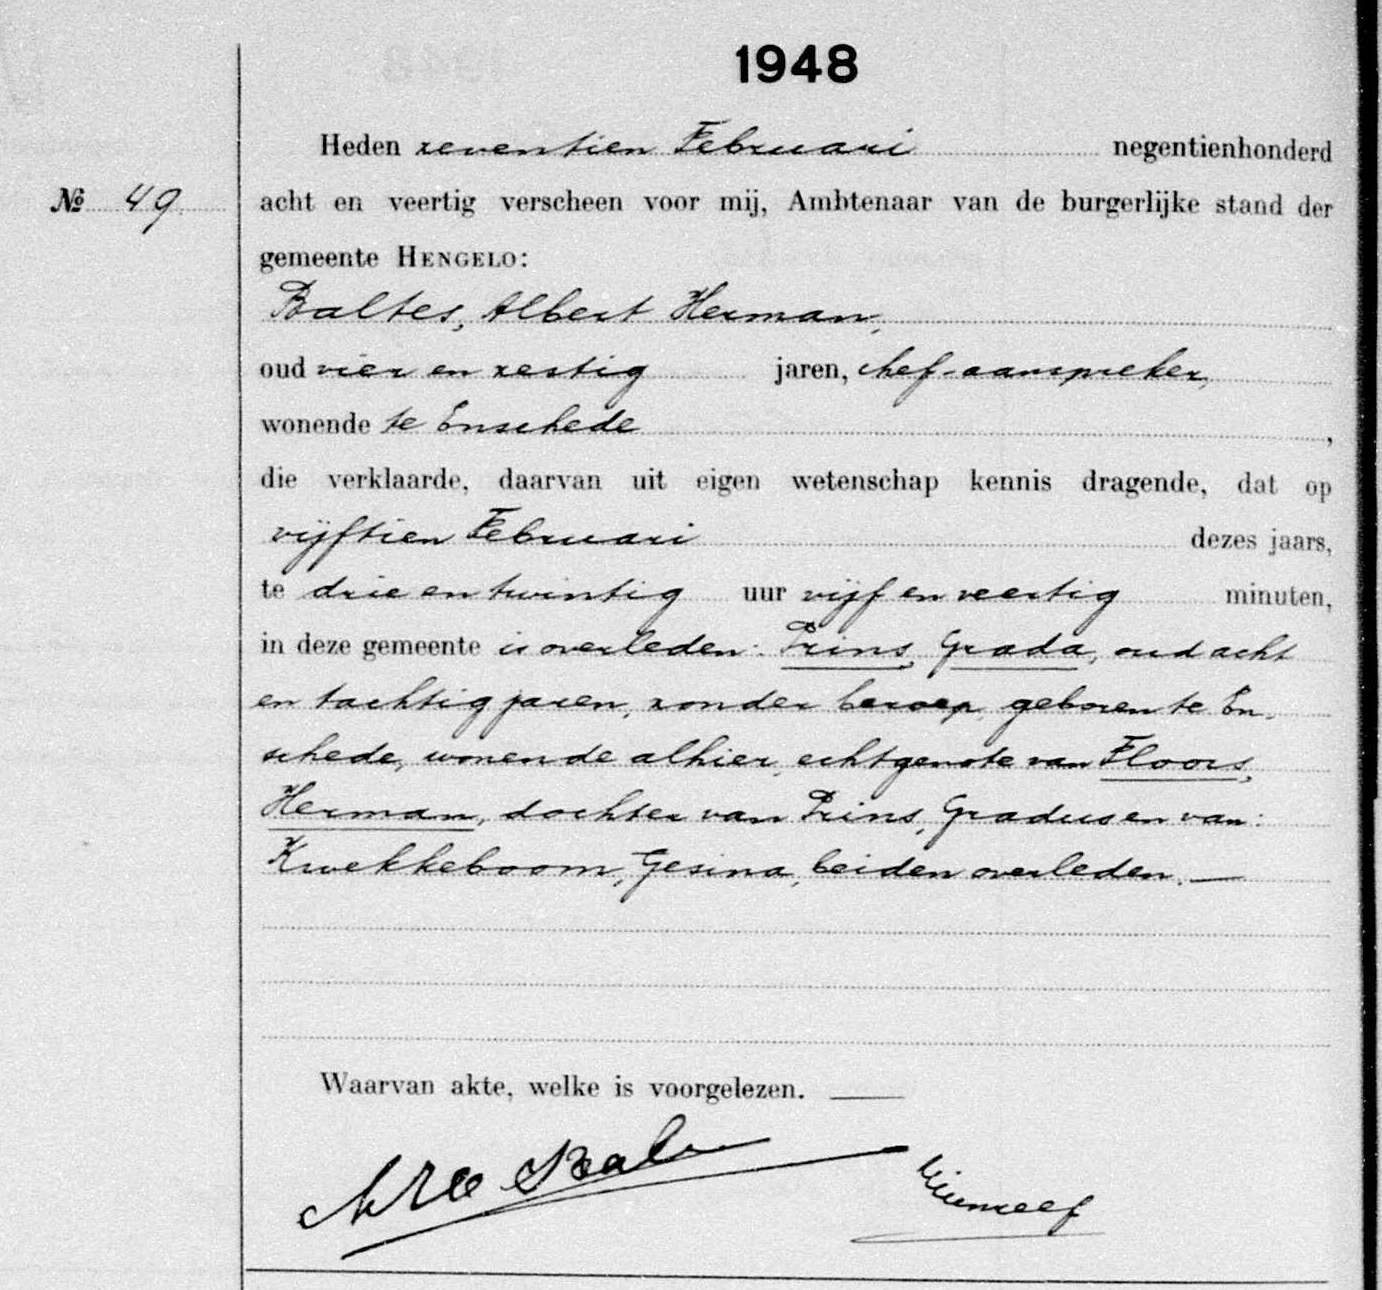 1948
Heden zeventien Februari negentienhonderd
№ 49
acht en veertig verscheen voor mij, Ambtenaar van de burgerlijke stand der
gemeente HENGELO:
Baltes, Albert Herman,
oud vier en zestig jaren, chef-aanspreker,
wonende te Enschede,
die verklaarde, daarvan uit eigen wetenschap kennis dragende, dat op
vijftien Februari dezes jaars,
te drie en twintig uur vijf en veertig minuten,
in deze gemeente is overleden: Prins, Grada, oud acht
en tachtig jaren, zonder beroep, geboren te En-
schede, wonende alhier, echtgenote van Floors,
Herman, dochter van Prins, Gradus en van:
Kwekkeboom, Gesina, beiden overleden. —
Waarvan akte, welke is voorgelezen. —